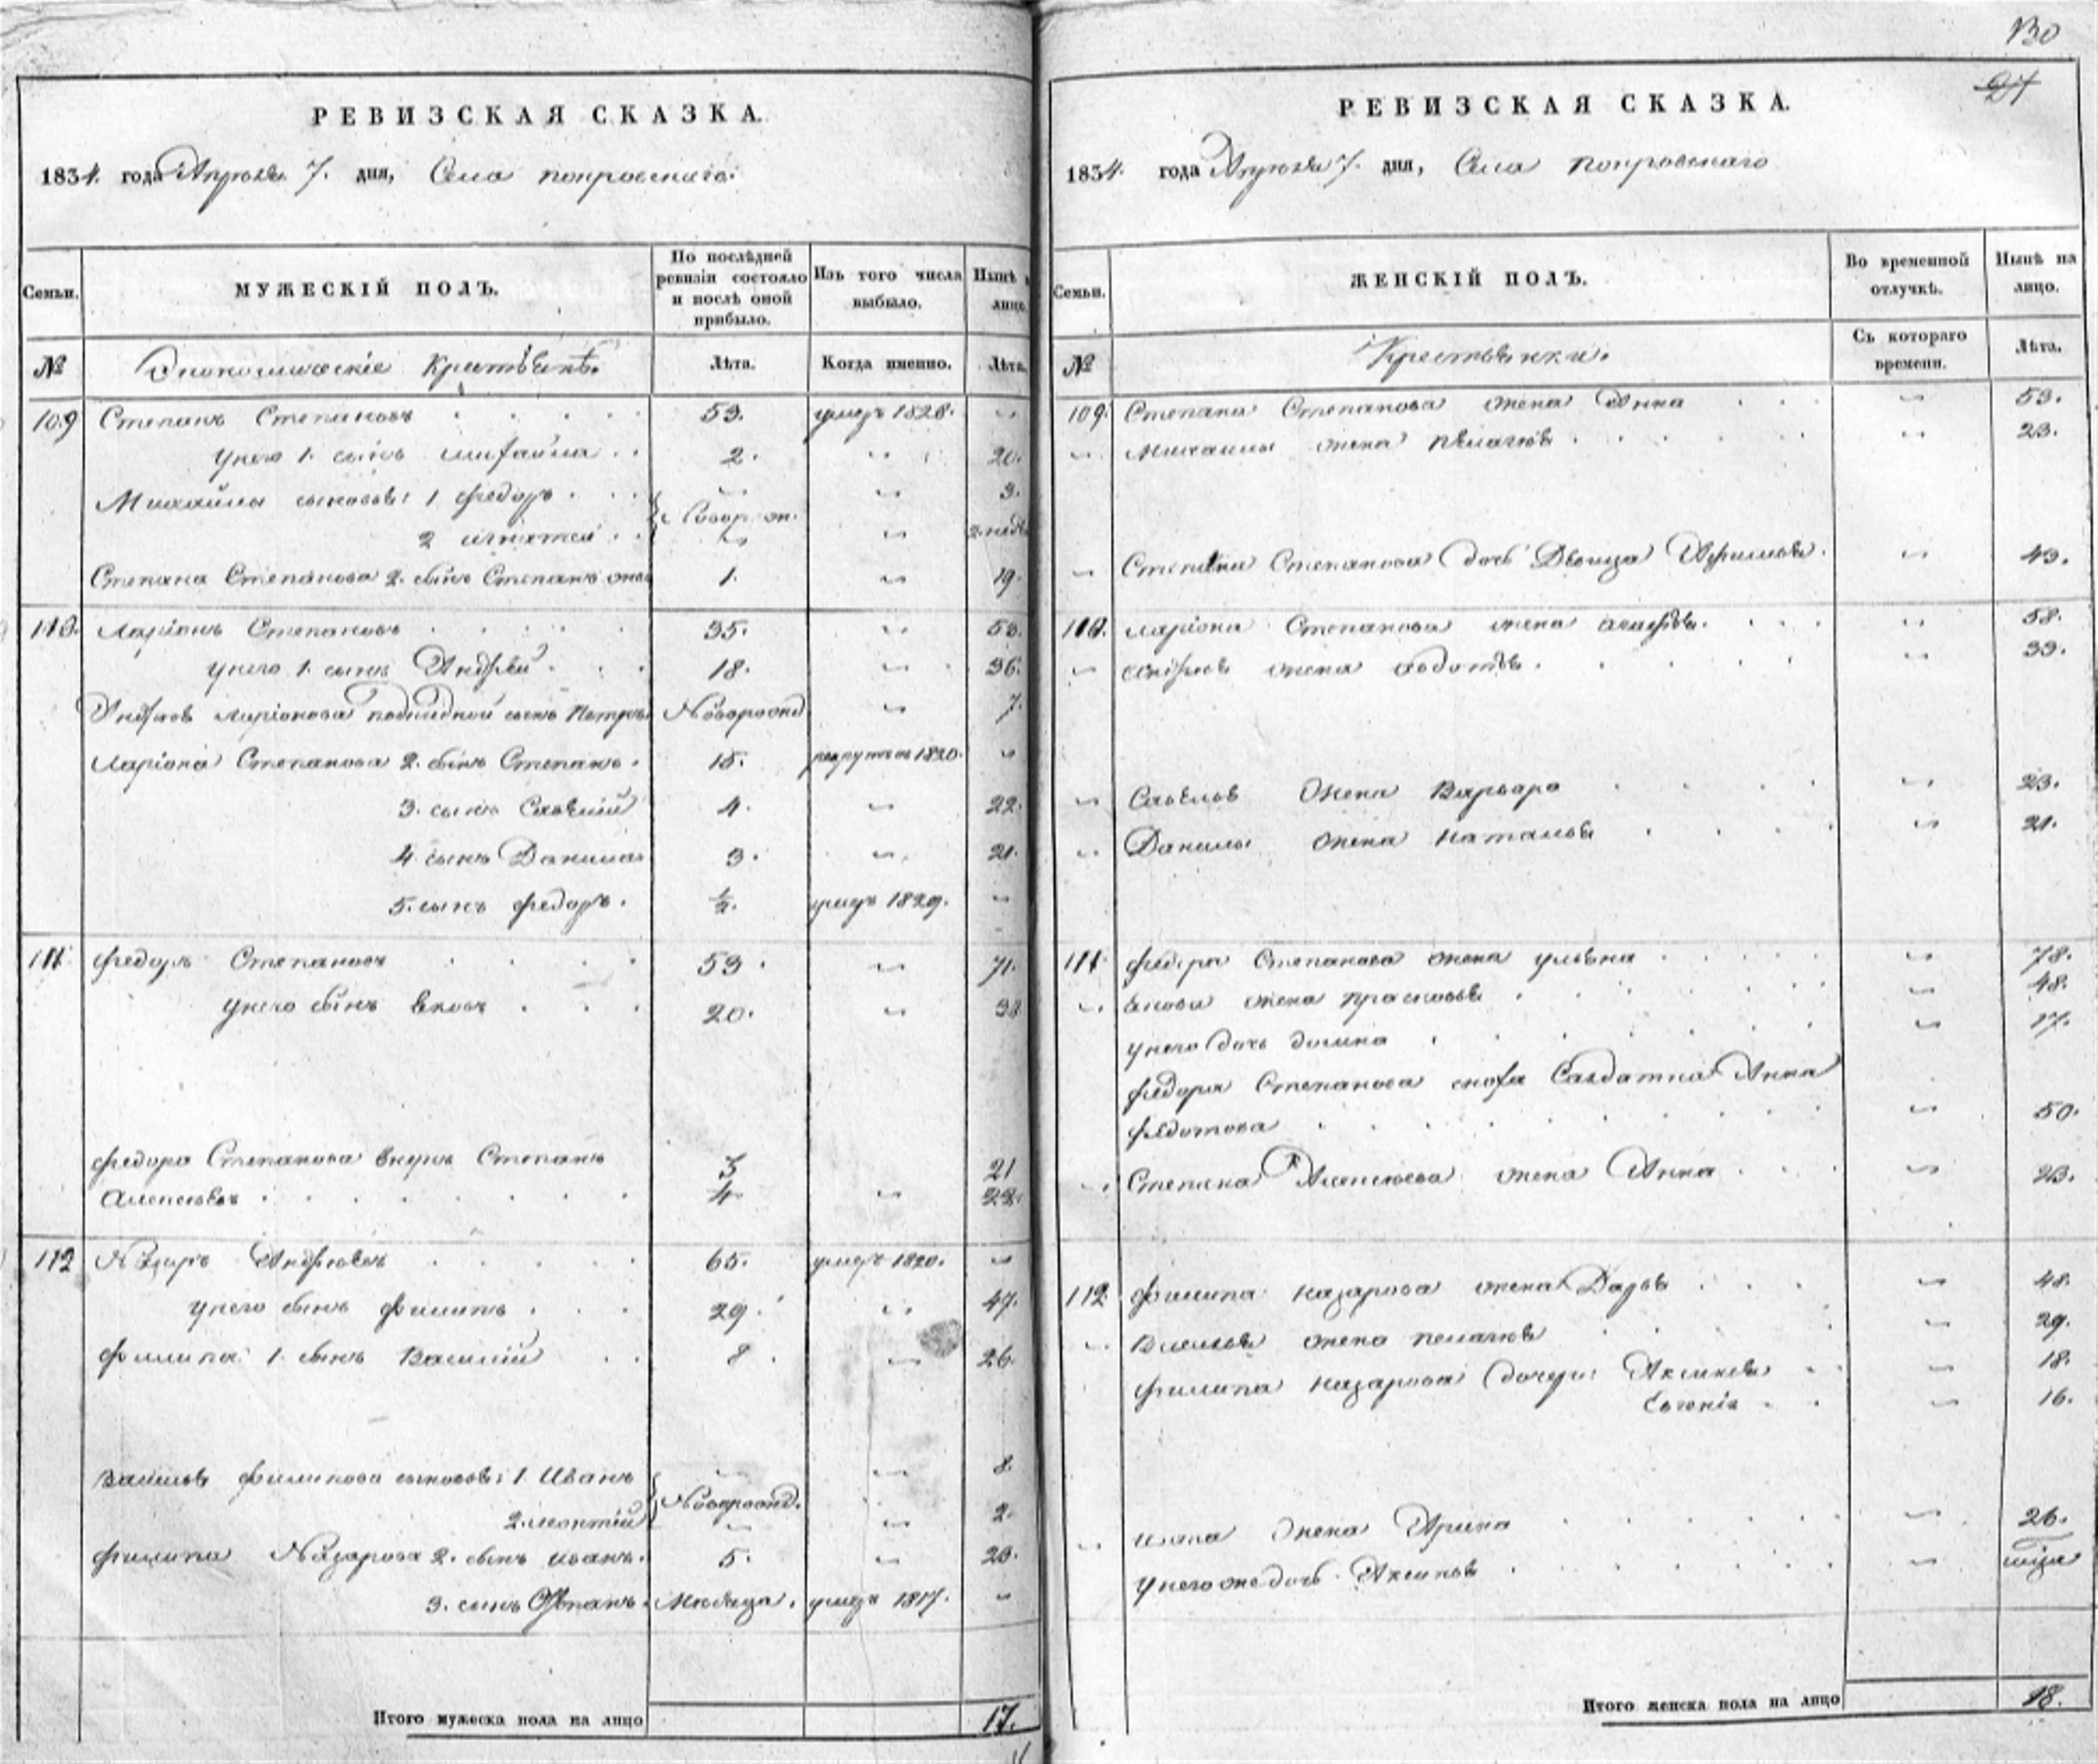 130
РЕВИЗСКАЯ СКАЗКА.
1834. года Апреля 7. дня, Села покровскаго:
Семьи.
МУЖЕСКІЙ ПОЛЪ.
По послѣдней ревизіи состояло и послѣ оной прибыло.
Изъ того числа выбыло.
Нынѣ лицо
№
Экономическіе Крестьянѣ.
Лѣта.
Когда именно.
Лѣта.
109 Степанъ Степановъ 53. умеръ 1828. "
у него 1. сынъ михайла 2. " 20.
Михайлы сыновья: 1 федоръ " " 3.
Новорож.
2 игнатей " " 2 нед
Степана Степанова 2. сынъ Степанъ же 1. " 19.
110. Ларіонъ Степановъ 35. " 53.
у него 1. сынъ Андрей 18. " 36.
Андрея Ларіонова сынъ Петръ Новорожд " 7.
Ларіона Степанова 2. сынъ Степанъ. 15. рекрутъ 1820. "
3. сынъ Савелій 4. " 22.
4. сынъ Данила 3. " 21.
5. сынъ федоръ. ½. умеръ 1829. "
111. федоръ Степановъ 53. " 71.
у него сынъ яковъ 20. " 38
федора Степанова внукъ Степанъ 3 21
алексѣевъ 4 " 22.
112 Назаръ Андрѣевъ 65. умеръ 1820. "
у него сынъ филипъ 29. " 47.
филипа 1. сынъ Василій 8. " 26.
Василья филипова сыновья: 1 Иванъ " " 8.
Новорожд.
2 леонтій " " 2.
филипа Назарова 2. сынъ иванъ. 5. " 23.
3. сынъ Мѣсяца. умеръ 1817. "
Итого мужеска пола на лицо 17.
97
РЕВИЗСКАЯ СКАЗКА.
1834. года Апреля 7. дня, Села покровскаго
Семьи.
ЖЕНСКІЙ ПОЛЪ.
Во временной отлучкѣ.
Нынѣ на лицо.
№
Крестьянки.
Съ котораго времени.
Лѣта.
109. Степана Степанова жена Анна " 53.
" Михаилы жена пелагѣя " 23.
" Степана Степанова дочь Двоица " 43.
110. ларіона Степанова жена агафья " 58.
" андрея жена авдотья " 33.
" Савелья жена Варвара " 23.
" Данилы жена наталья " 21.
111. федора Степанова жена ульяна " 78.
" якова жена прасковья " 48.
у него дочь домна " 17.
федора Степанова сноха Салдатка Анна
федотова " 50.
" Степана Алексѣева жена Анна " 23.
112. филипа назарова жена Дарья " 48.
" Василья жена пелагѣя " 29.
филипа назарова дочери: Аксинья " 18.
Евгенія " 16.
" ивана жена Арина " 26.
у него же дочь Аксинья " мѣца
Итого женска пола на лицо 18.